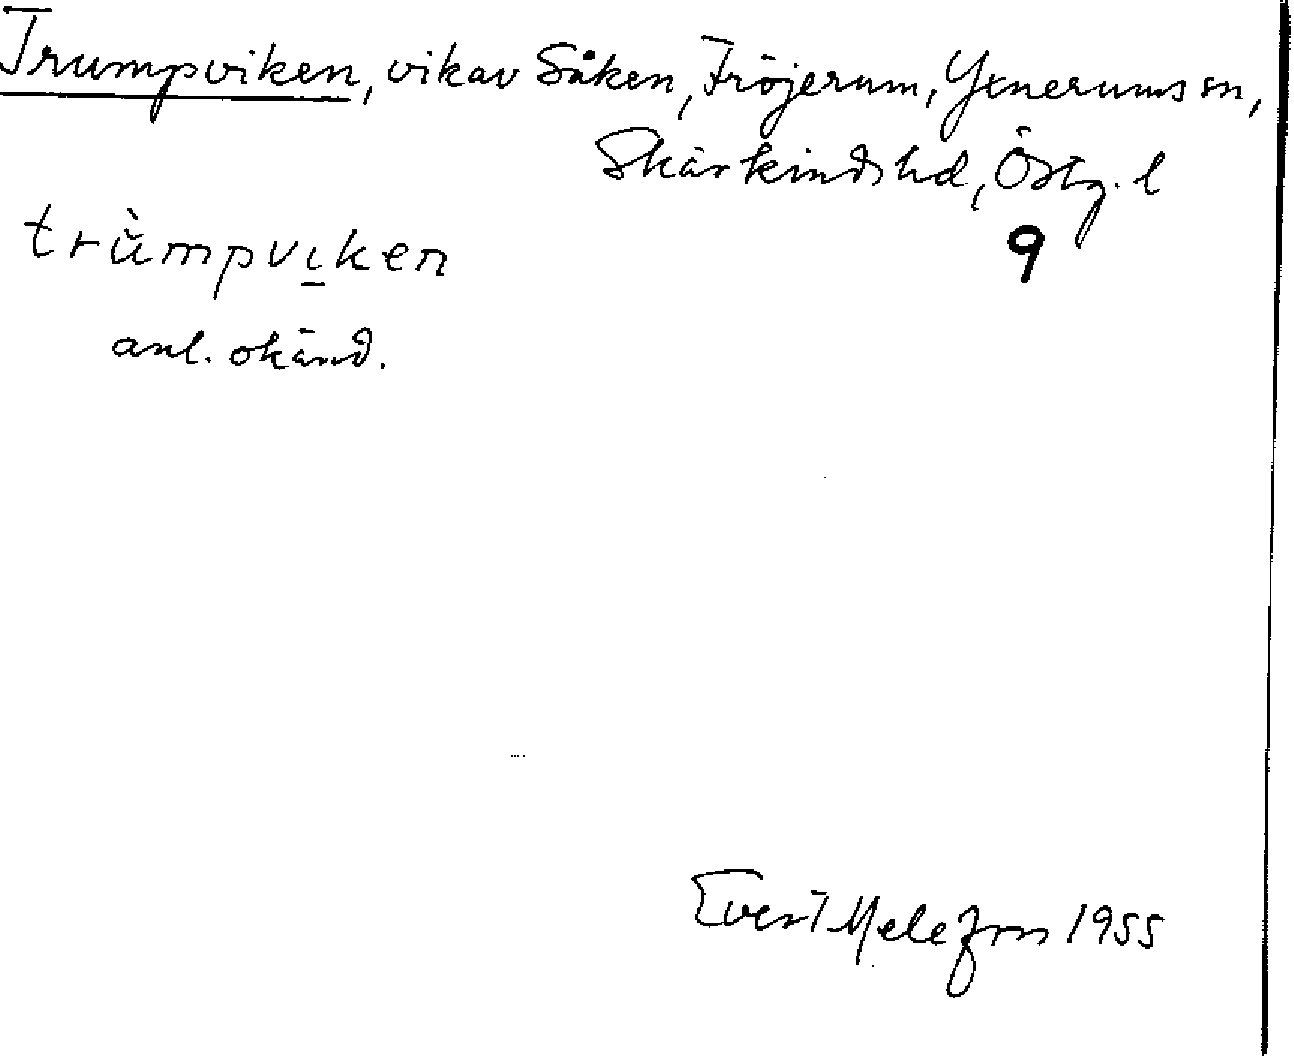 Trumpviken, vik av Såken, Fröjerum, Yxnerums sn,
Skärkinds hd, Östg. l
9
trùmpvıken
anl. okänd.
Evert Melefors 1955